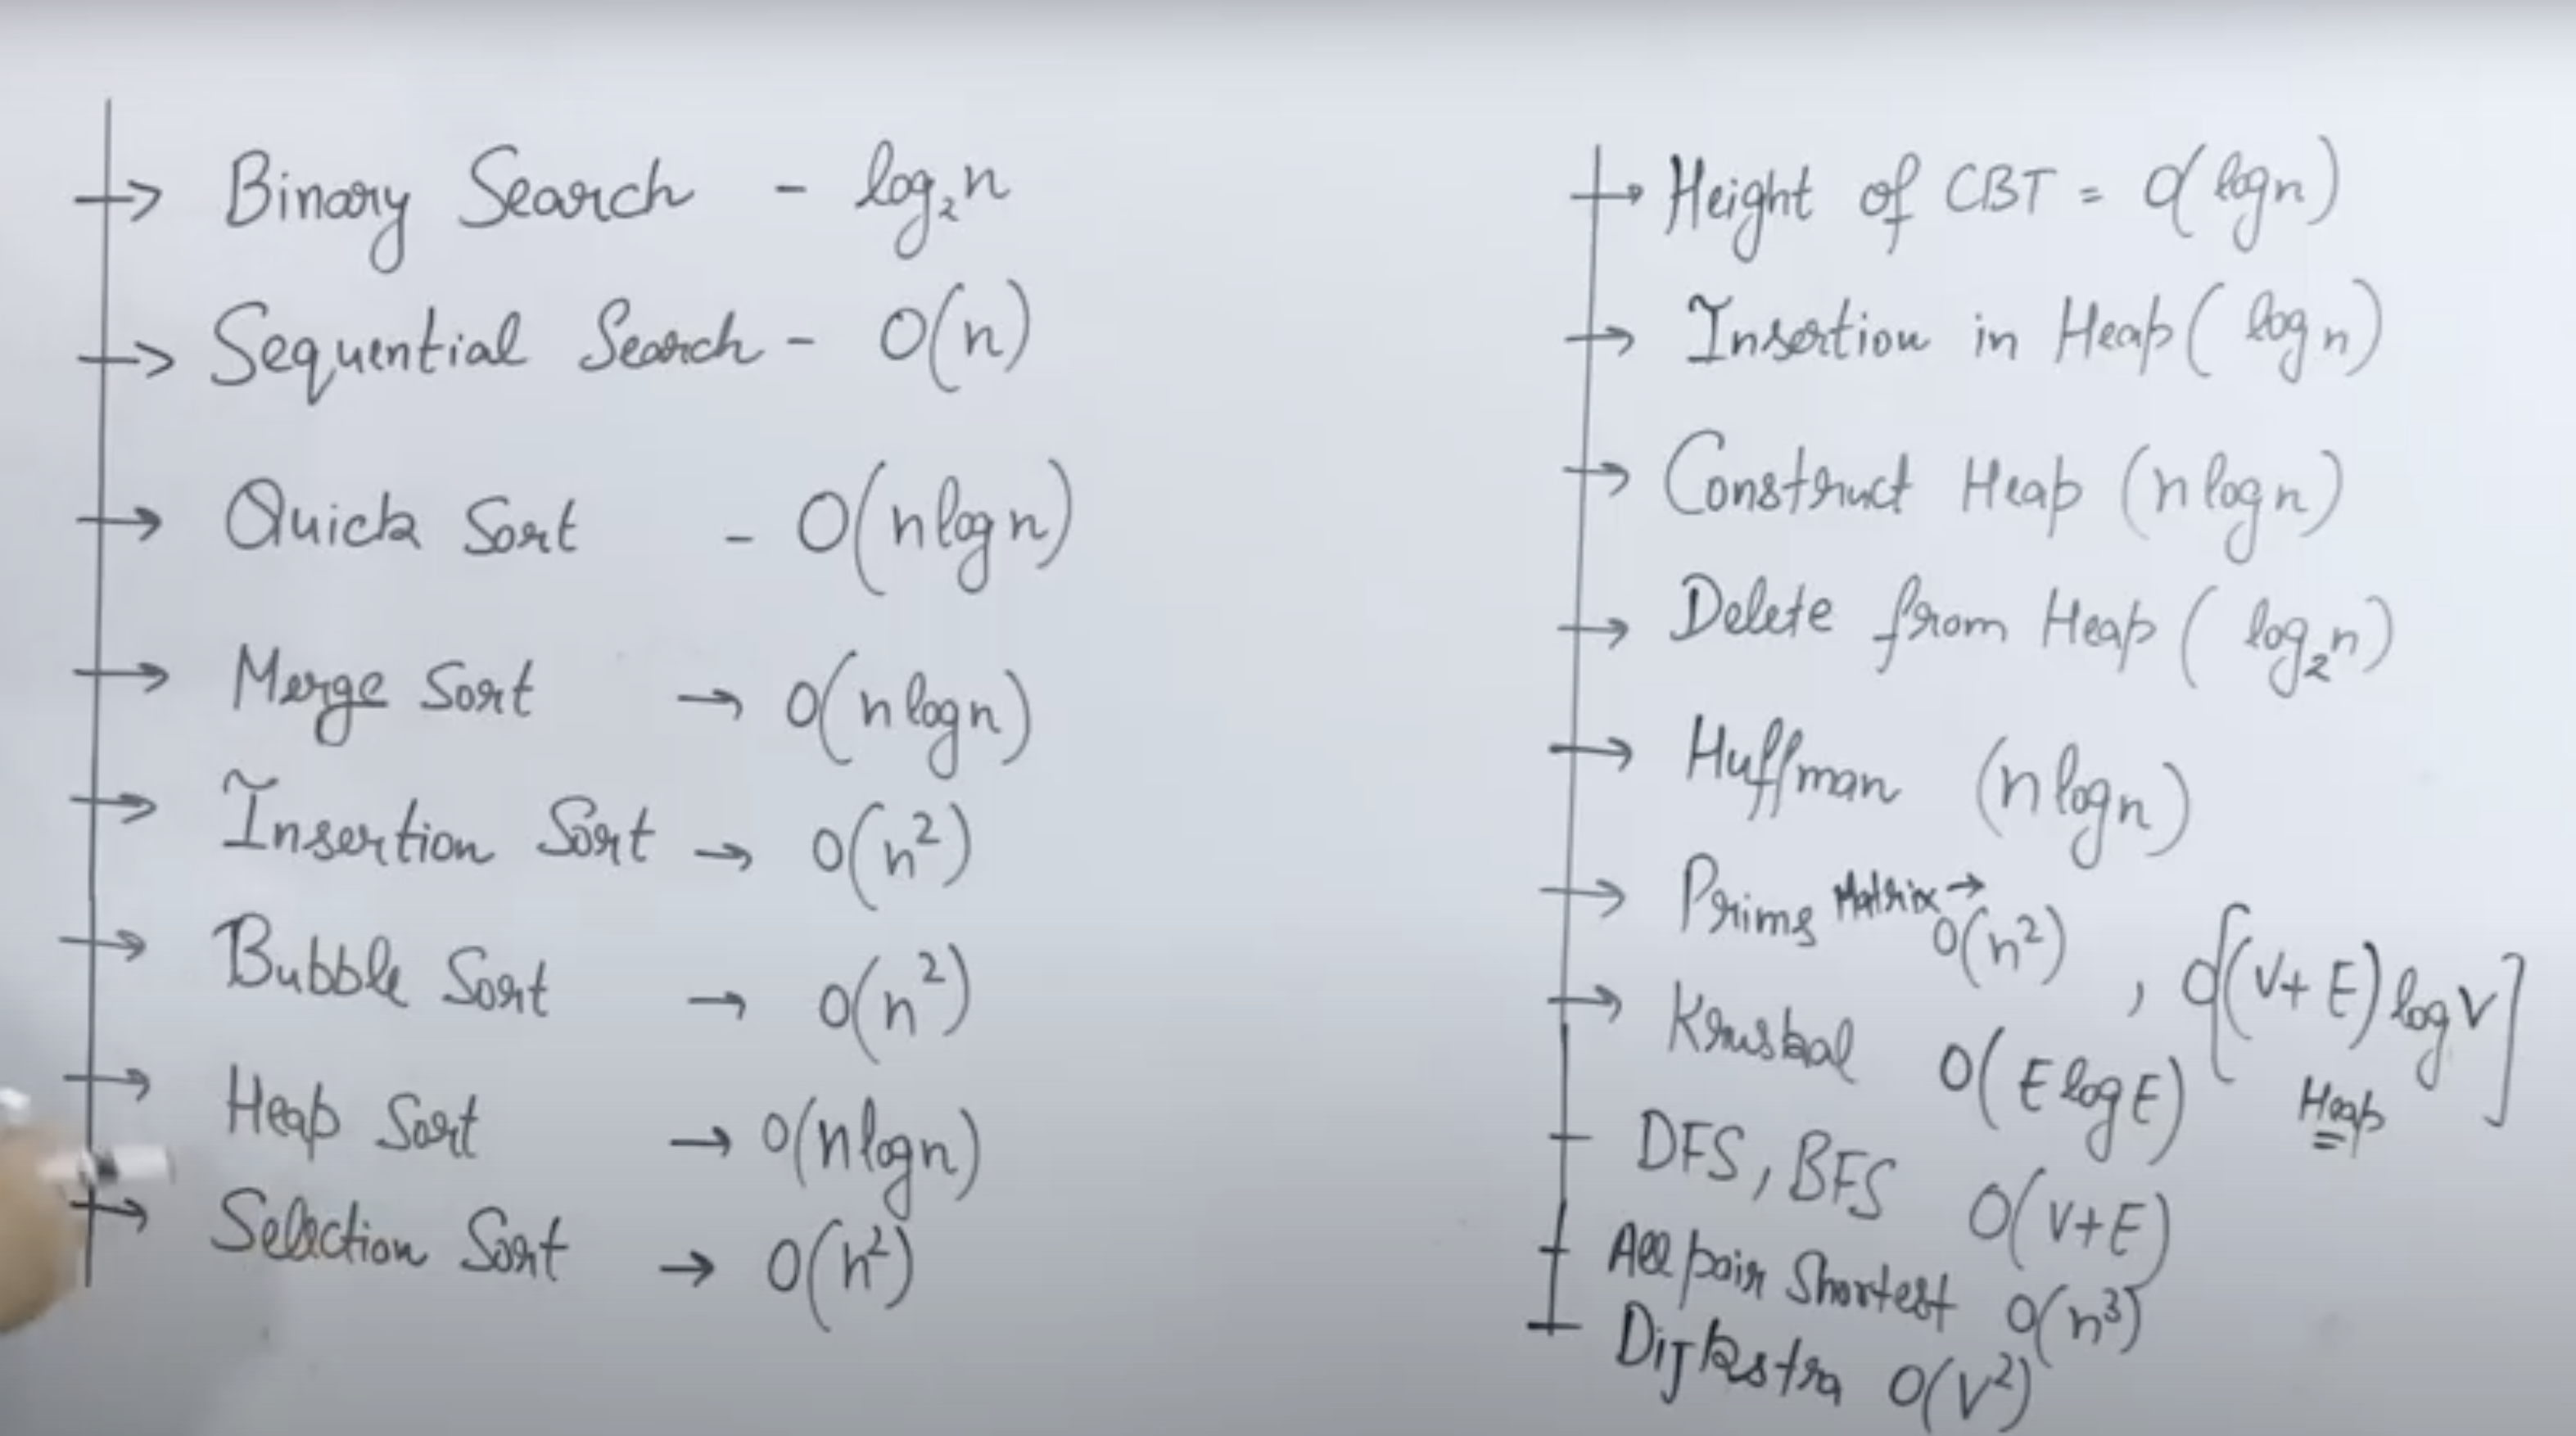 → Binary Search - log₂n
→ Sequential Search - O(n)
→ Quick Sort - O(nlogn)
→ Merge Sort → O(nlogn)
→ Insertion Sort → O(n²)
→ Bubble Sort → O(n²)
→ Heap Sort → O(nlogn)
→ Selection Sort → O(n²)
→ Height of CBT = O(logn)
→ Insertion in Heap (logn)
→ Construct Heap (nlogn)
→ Delete from Heap (log₂n)
→ Huffman (nlogn)
→ Prims Matrix → O(n²), O[(V+E)logV]
Heap
→ Kruskal O(ElogE)
DFS, BFS O(V+E)
All pair Shortest O(n³)
Dijkstra O(V²)